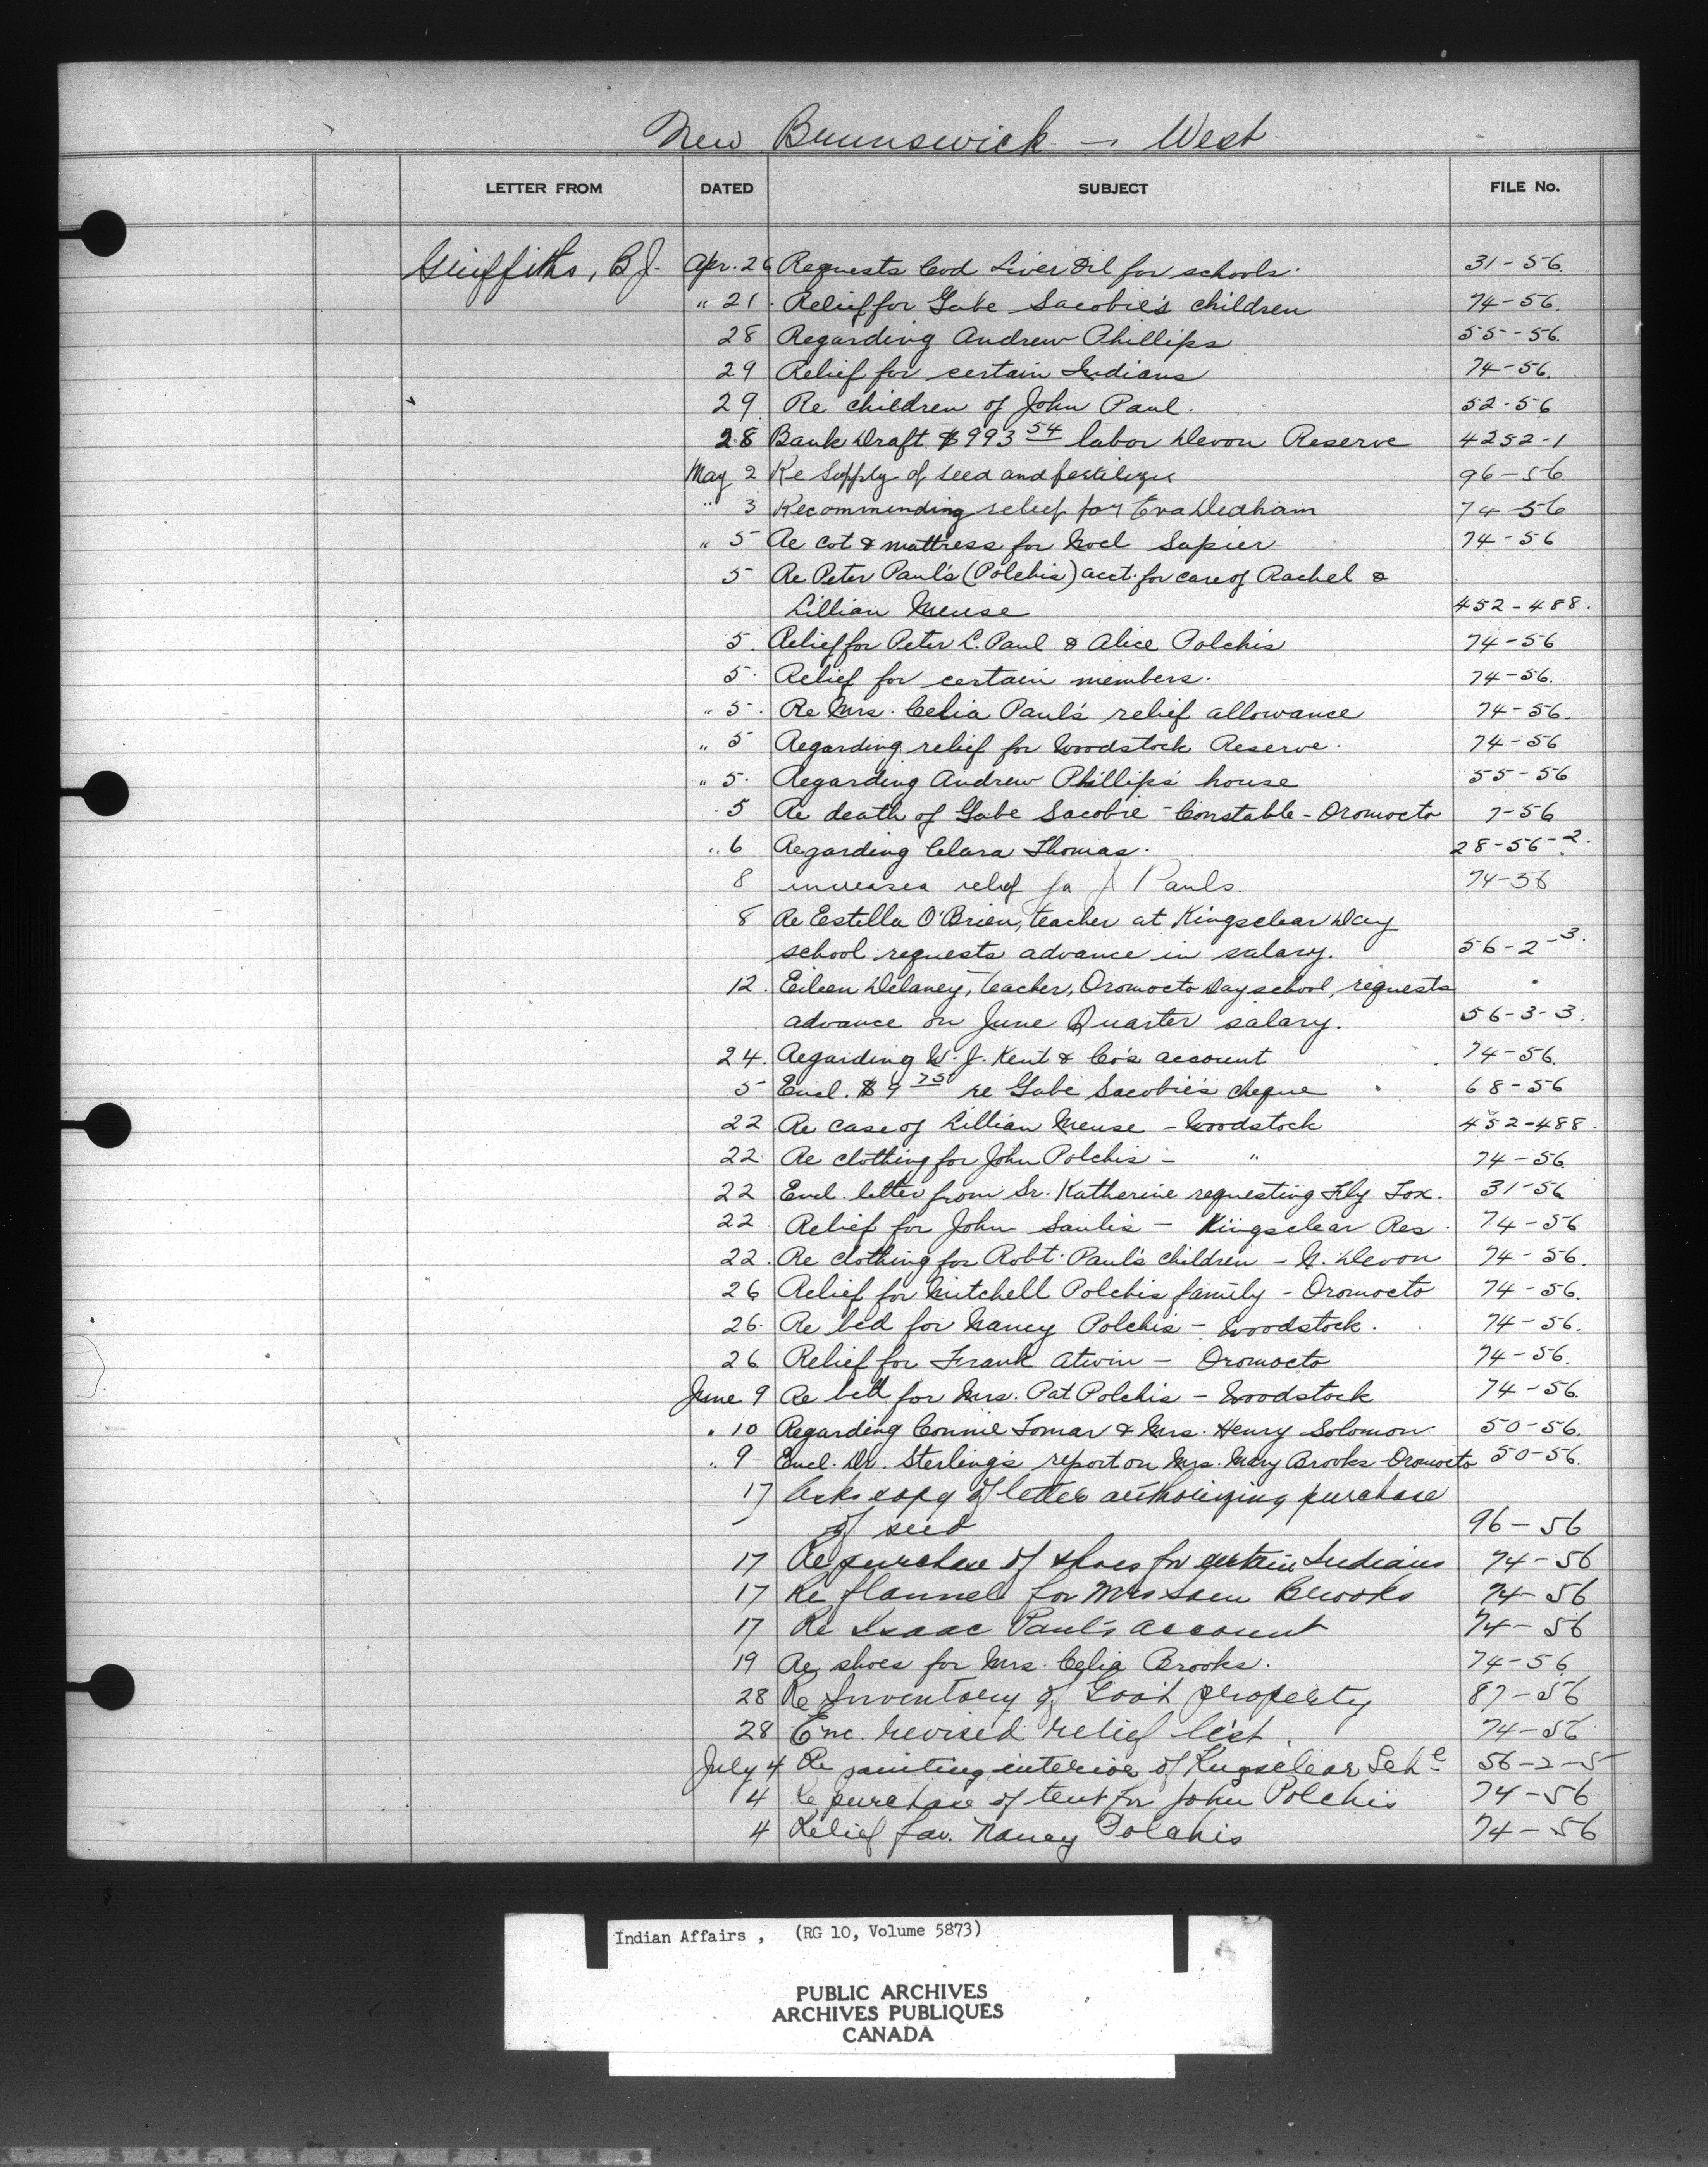 New Brunswick - West
LETTER FROM DATED SUBJECT FILE No.
Griffiths, B.J. Apr. 26 Requests Cod Liver Oil for schools. 31-56.
" 21. Relief for Gabe Sacobie's children 74-56.
28 Regarding Andrew Phillips 55-56.
29 Relief for certain Indians 74-56.
29 Re children of John Paul. 52-56
28 Bank Draft $993 54 labor Devon Reserve 4252-1
May 2 Re Supply of seed and fertilizer 96-56
" 3 Recommending relief for Eva Dedham 74-56
" 5 Re cot & mattress for Noel Sapier 74-56
5 Re Peter Paul's (Polchis) acct. for care of Rachel &
Lillian Meuse 452-488.
5. Relief for Peter L. Paul & Alice Polchis 74-56
5. Relief for certain members. 74-56.
" 5. Re Mrs. Celia Paul's relief allowance 74-56.
" 5 Regarding relief for Woodstock Reserve. 74-56
" 5. Regarding Andrew Phillips' house 55-56
5 Re death of Gabe Sacobie - Constable - Oromocto 7-56
" 6 Regarding Clara Thomas. 28-56-2.
8 increased relief for J Pauls. 74-56
8 Re Estella O'Brien, teacher at Kingsclear Day
school requests advance in salary. 56-2-3.
12. Eileen Delaney, Teacher, Oromocto Day school, requests
advance on June Quarter salary. 56-3-3.
24. Regarding W. J. Kent & Co's account 74-56.
5 Encl. $9 75 re Gabe Sacobie's cheque 68-56
22 Re case of Lillian Meuse - Woodstock 452-488.
22. Re clothing for John Polchis - " 74-56.
22 Encl. letter from Sr. Katherine requesting Fly Tox. 31-56
22. Relief for John Saulis - Kingsclear Res. 74-56
22. Re clothing for Robt. Paul's children - N. Devon 74-56.
26 Relief for Mitchell Polchis family - Oromocto 74-56.
26. Re bed for Nancy Polchis - Woodstock. 74-56.
26 Relief for Frank Atwin - Oromocto 74-56.
June 9 Re bill for Mrs. Pat Polchis - Woodstock 74-56.
" 10 Regarding Connie Tomar & Mrs. Henry Solomon 50-56.
" 9 Encl. Dr. Sterling's report on Mrs. Mary Brooks - Oromocto 50-56.
17 Asks copy of letter authorizing purchase
of seed 96-56
17 Re purchase of shoes for certain Indians 74-56
17 Re flannel for Mrs Sam Brooks 74-56
17 Re Isaac Paul's account 74-56
19 Re shoes for Mrs. Celia Brooks. 74-56
28 Re Inventory of Gov't property 87-56
28 Enc. revised relief list. 74-56
July 4 Re painting interior of Kingsclear Schl 56-2-5
4 Re purchase of tent for John Polchis 74-56
4 Relief fav. Nancy Polchis 74-56
Indian Affairs , (RG 10, Volume 5873)
PUBLIC ARCHIVES
ARCHIVES PUBLIQUES
CANADA
SAFETY FILM